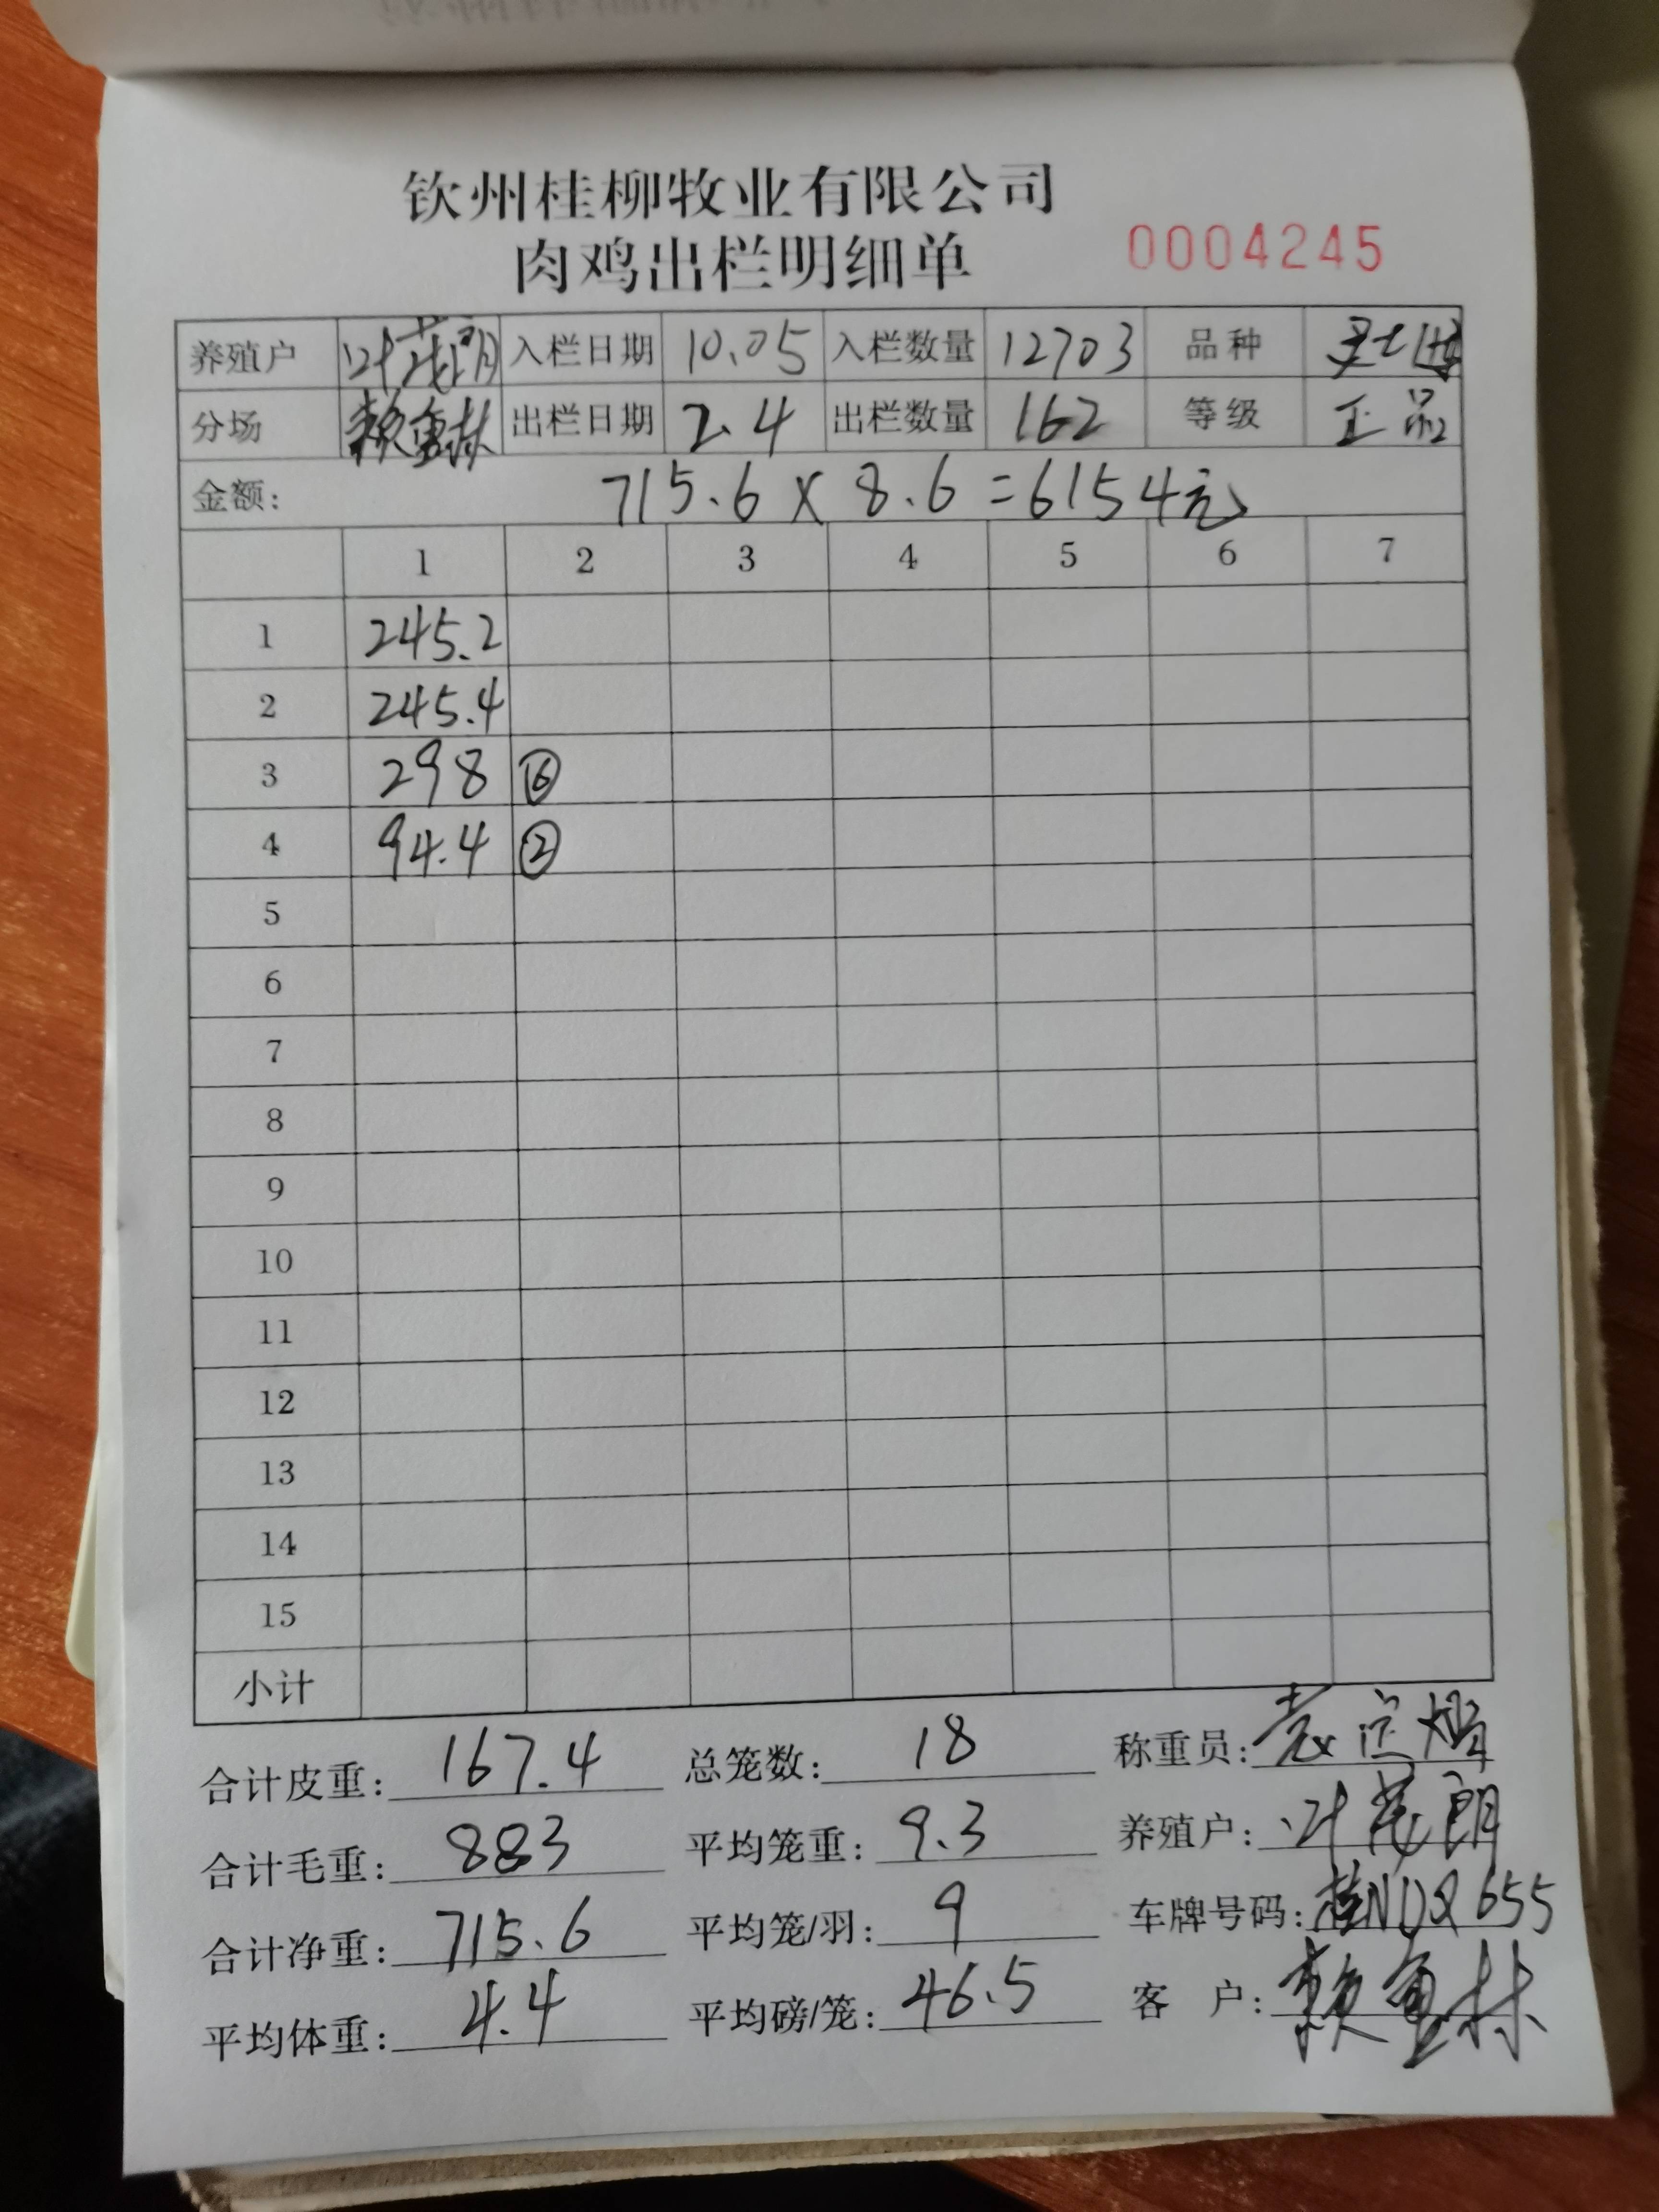 钦州桂柳牧业有限公司
肉鸡出栏明细单 0004245
养殖户 叶茂朗 入栏日期 10.05 入栏数量 12703 品种
分场 出栏日期 2.4 出栏数量 162 等级 正品
金额: 715.6 X 8.6 = 6154元
1 2 3 4 5 6 7
1 245.2
2 245.4
3 298 ⑥
4 94.4 ②
5
6
7
8
9
10
11
12
13
14
15
小计
合计皮重: 167.4 总笼数: 18 称重员:
合计毛重: 883 平均笼重: 9.3 养殖户: 叶茂朗
合计净重: 715.6 平均笼/羽: 9 车牌号码:
平均体重: 4.4 平均磅/笼: 46.5 客 户: